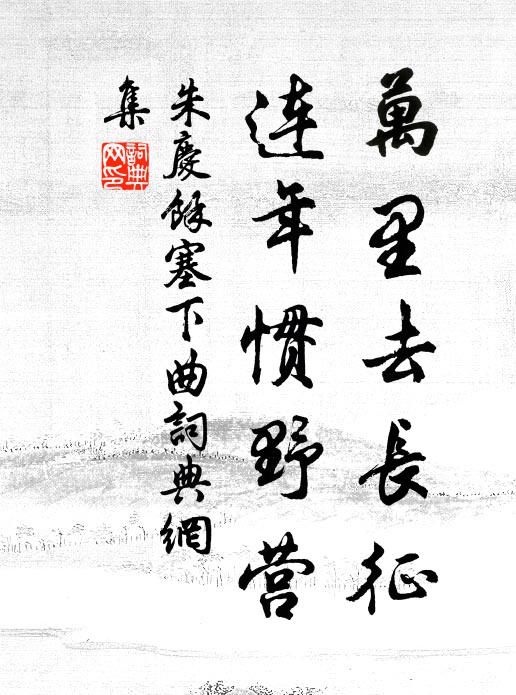 萬里去長征
連年慣野营
朱慶餘塞下曲詞典網
集
詞典
网印